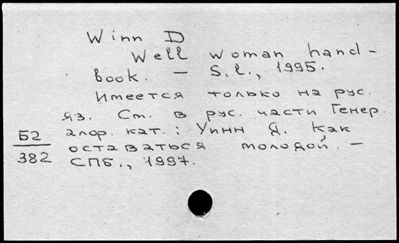 Winn D
Well woman hand-
book. - S.l., 1995.
Имеется только на рус.
яз. См. в рус. части Генер.
алф. кат.: Уинн Д. Как
оставаться молодой. -
СПб., 1997.
Б2
382